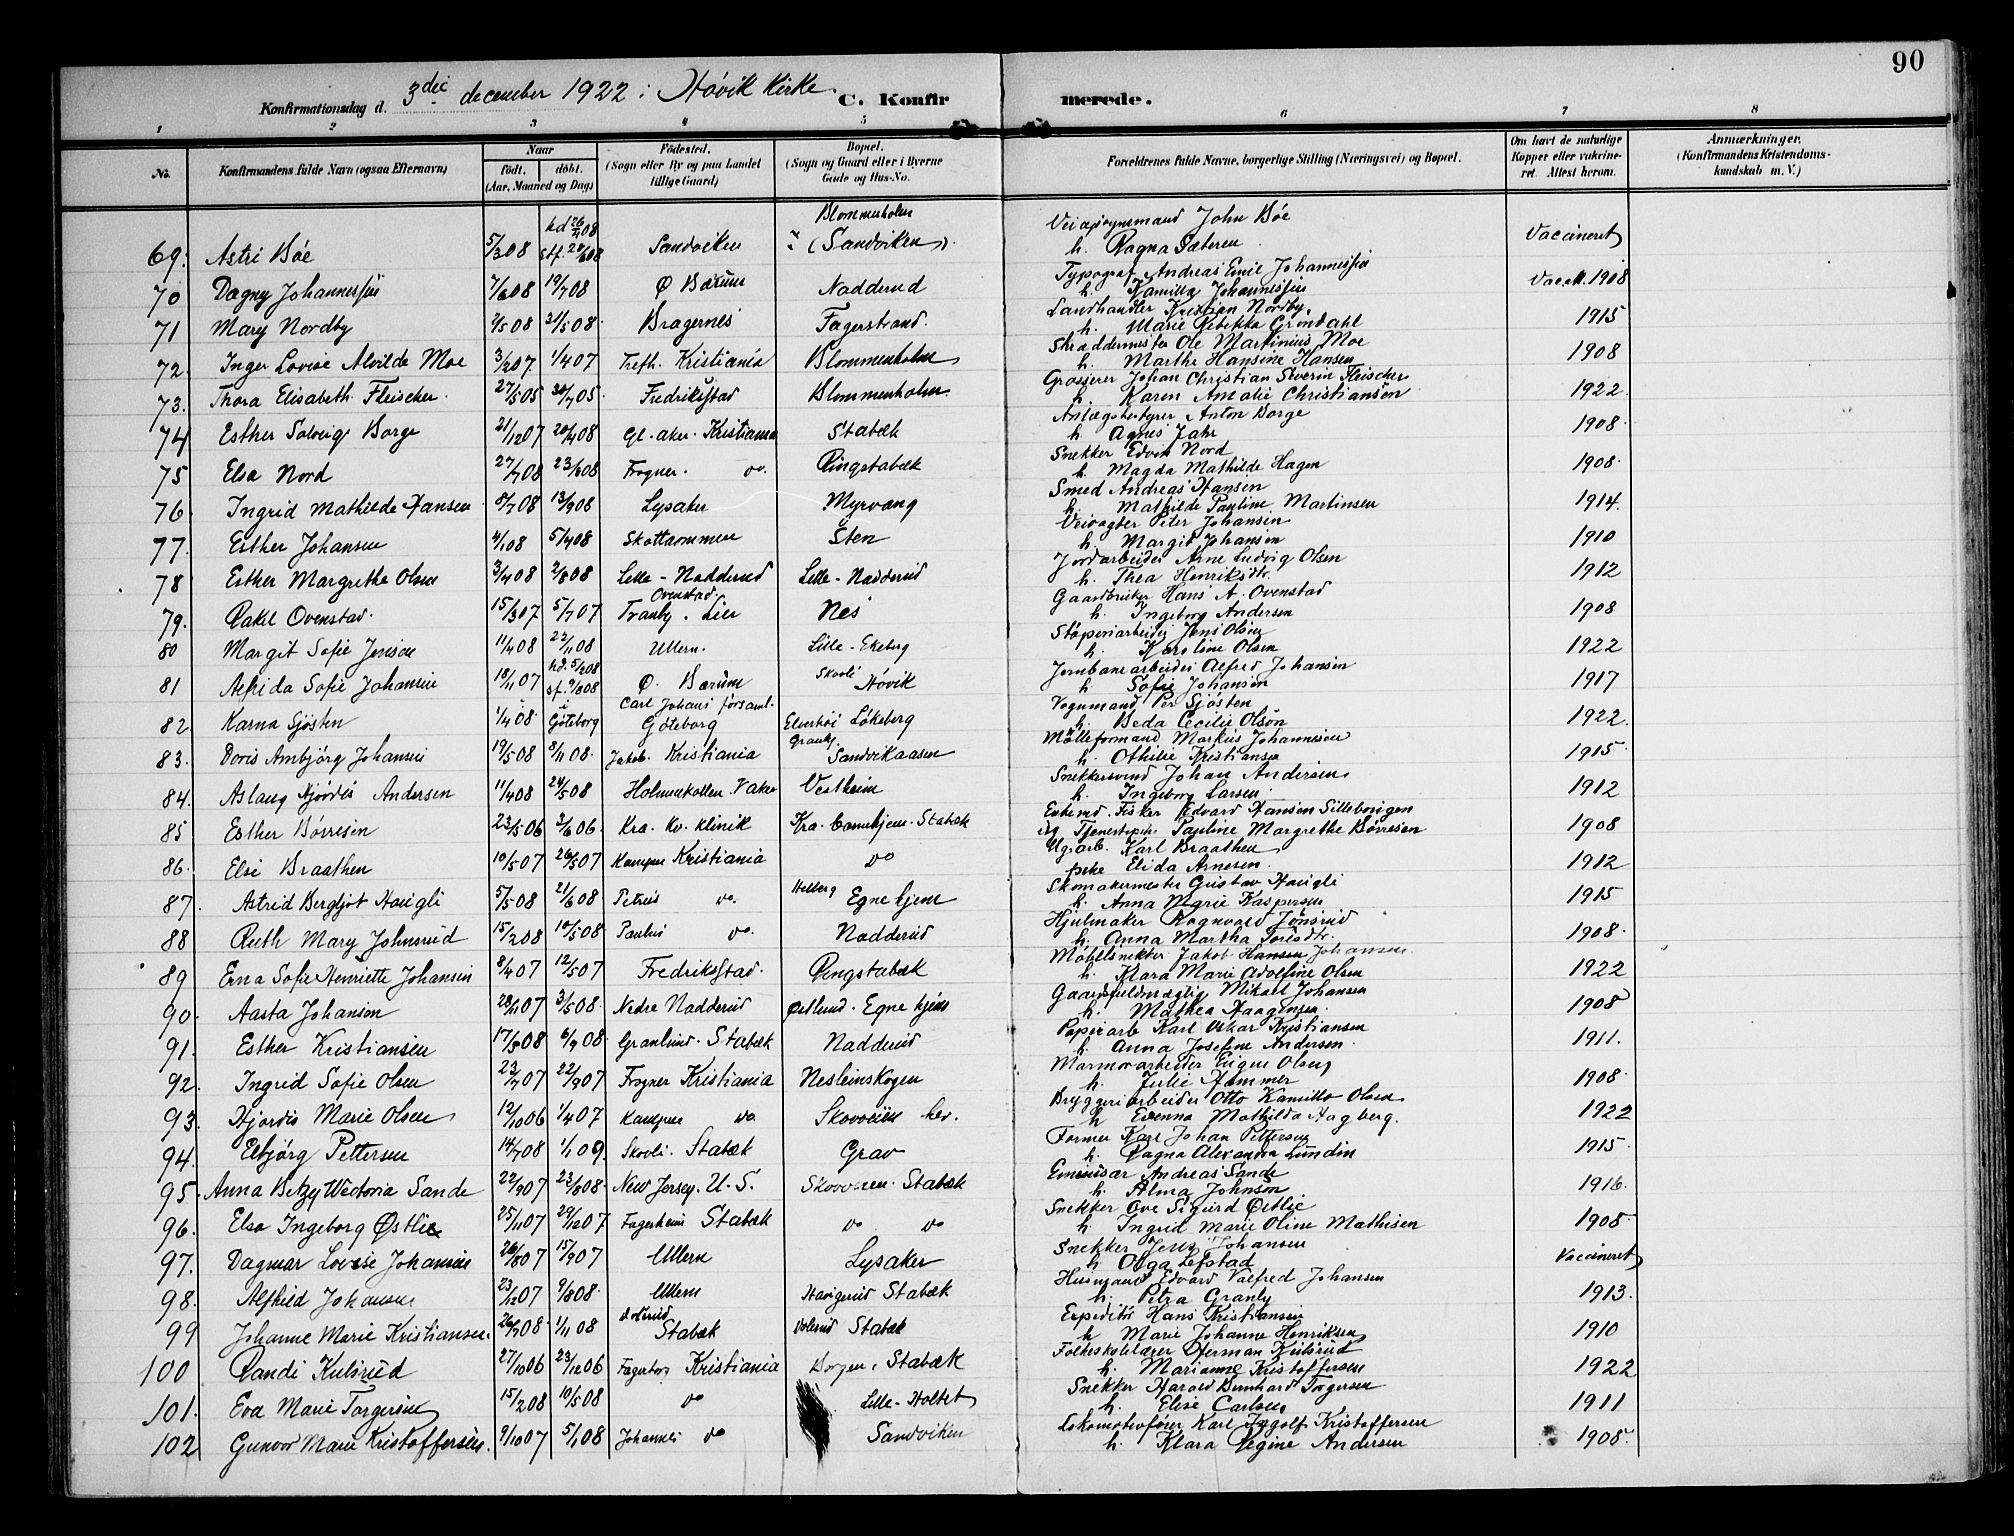 90
Konfirmationsdag d. 3die december 1922 i Høvik Kirke. C. Konfirmerede.
1 2 3 4 5 6 7 8
No. Konfirmandens fulde Navn (ogsaa Efternavn) Naar født. døbt. (Aar, Maaned og Dag) Fødested. (Sogn eller By og paa Landet tillige Gaard) Bopæl. (Sogn og Gaard eller i Byerne Gade og Hus-No. Forældrenes fulde Navne, borgerlige Stilling (Næringsvei) og Bopæl. Om havt de naturlige Kopper eller vaccineret. Attest herom. Anmærkninger. (Konfirmandens Kristendomskundskab m. V.)
69. Astri Bøe 5/3 08 hd 26/4 08 stf. 28/6 08 Sandviken Blommenholm (Sandviken). Veiopsynsmand John Bøe h. Ragna Sæteren Vaccineret
70 Dagny Johannessen 7/6 08 19/7 08 Ø Bærum Nadderud Typograf Andreas Emil Johannessen h. Kamilla Johannessen Vacc. 1908
71 Mary Nordby 2/5 08 31/5 08 Bragernes Fagerstrand. Landhandler Kristian Nordby, h. Marie Rebekka Grøndahl 1915
72 Inger Lovise Alvilde Moe 3/2 07 1/4 07 Trefh. Kristiania Blommenholm Skræddermester Ole Martinius Moe h. Marthe Hansine Hansen 1908
73. Thora Elisabeth Fleischer. 27/5 05 30/7 05 Fredrikstad Blommenholm Grosserer Johan Christian Severin Fleischer h. Karen Amalie Christiansen 1922
74 Esther Solveig Borge 21/12 07 20/4 08 Gl. aker. Kristiania Stabæk Anlægsbestyrer Anton Borge h. Agnes Jahr 1908
75 Elsa Nord 27/4 08 23/6 08 Frogner. do. Ringstabæk Snekker Edvin Nord h. Magda Mathilde Hagen 1908
76 Ingrid Mathilde Hansen 8/7 08 13/9 08 Lysaker Myrvang Smed Andreas Hansen h. Mathilde Pauline Martinsen 1914
77. Esther Johansen 4/1 08 5/4 08 Skottaommen Sten Veivogter Peter Johansen h. Margit Johansen 1910
78 Esther Margrethe Olsen 3/4 08 2/8 08 Lille-Nadderud Lille-Nadderud Jordarbeider Arne Ludvig Olsen h. Thea Henriksdtr. 1912
79. Rakel Ovenstad. 15/3 07 5/7 07 Ovenstad. Tranby. Lier Nes Gaardbruker Hans A. Ovenstad h. Ingeborg Andersen 1908
80 Margit Sofie Jensen 11/4 08 22/11 08 Ullern. Lille-Ekeberg Støperiarbeider Jens Olsen h. Karoline Olsen 1922
81 Alfrida Sofie Johansen 18/11 07 hd. 5/2 08 st. 9/8 08 Ø. Bærum Skovli Høvik Jernbanearbeider Alfred Johansen h. Sofie Johansen 1917
82 Karna Sjøsten 1/4 08 i Göteborg Carl Johans församl. Göteborg Elverhøi Løkeberg Vognmand Per Sjøsten h. Beda Cecilie Olson 1922.
83. Doris Ambjørg Johansen 19/5 08 8/11 08 Jakob. Kristiania Granly Sandvikaasen Mølleformand Markus Johannesen h. Othilie Kristiansen 1915
84. Aslaug Hjørdis Andersen 11/4 08 24/5 08 Holmenkollen. V. aker Vestheim Snekkersvend Johan Andersen h. Ingeborg Larsen 1912
85 Esther Børresen 23/5 06 3/6 06. Kra. kv. klinik Kra. barnehjem. Stabæk Enkemd. Fisker Edvard Hansen Silleborgen og Tjenestepike Pauline Margrethe Børresen 1908
86. Elsi Braathen 10/5 07 26/5 07 Kampen Kristiania do Ugift arb. Karl Braathen pike Elida Arnesen. 1912
87. Astrid Bergljot Haugli 5/5 08 21/6 08 Petrus do. Helberg Egne hjem Skomakermester Gustav Haugli h. Anna Marie Kaspersen 1915
88 Ruth Mary Johnsrud 15/2 08 10/5 08 Paulus do. Nadderud Hjulmaker Ragnvald Jonsrud h. Anna Martha Torisdtr. 1908.
89 Erna Sofie Henriette Johansen 8/4 07 12/5 07 Fredrikstad. Ringstabæk Møbelsnekker Jakob Hansen Johansen h. Klara Marie Adolfine Olsen 1922
90. Aasta Johansen 28/11 07 3/5 08. Nedre Nadderud Østlund. Egne hjem Gaardsfuldmægtig Mikael Johansen h. Mathea Haagensen 1908
91. Esther Kristiansen 17/3 08 6/9 08 Granlund. Stabæk Nadderud Papirarb Karl Oskar Kristiansen h. Anna Josefine Andersen. 1911.
92. Ingrid Sofie Olsen 23/7 07 22/9 07 Frogner Kristiania Nesleinskogen Marmorarbeider Eugen Olsen h. Julie Hammer 1908
93. Hjordis Marie Olsen 12/10 06 1/4 07 Kampen do Skovveien hev. Bryggeriarbeider Otto Kamillo Olsen h Evenna Mathilda Hagberg. 1922
94. Elbjørg Pettersen 14/7 08 1/1 09. Skovli. Stabæk Grav Former Karl Johan Pettersen h. Ragna Alexandra Lundin 1915
95. Anna Betzy Wictoria Sande 22/9 07 23/8 08. New Jersey. U. S. Skovveien. Stabæk Emissær Andreas Sande h. Alma Johnson 1916.
96. Elsa Ingeborg Østlie 25/11 07 29/12 07 Fagerheim Stabæk do do Snekker Ove Sigurd Østlie h. Ingrid Marie Oline Mathisen 1908
97. Dagmar Lovise Johansen 26/8 07 15/9 07 Ullern Lysaker Snekker Jens Johansen h Olga Lefstad Vaccineret
98. Alfhild Johansen 23/12 07 9/8 08. Ullern Haugerud Stabæk Husmand Edvard Valfred Johansen h. Petra Granly 1913.
99 Johanne Marie Kristiansen. 26/7 08. 1/11 08 Volerud Stabæk Volerud Stabæk Expeditør Hans Kristiansen h Marie Johanne Henriksen 1910
100 Randi Kulsrud 27/10 06 23/12 06 Fagerborg Kristiania Borgen, Stabæk Folkeskolelærer Herman Kulsrud h. Marianne Kristoffersen 1922
101. Eva Marie Torgersen 15/2 08 10/5 08 do Lille-Holtet Snekker Harald Bernhard Torgersen h. Elise Carlsen 1911
102 Gunvor Marie Kristoffersen. 9/10 07 5/1 08 Johannes do Sandviken Lokomotivfører Karl Ingolf Kristoffersen h. Klara Regine Andersen 1908.